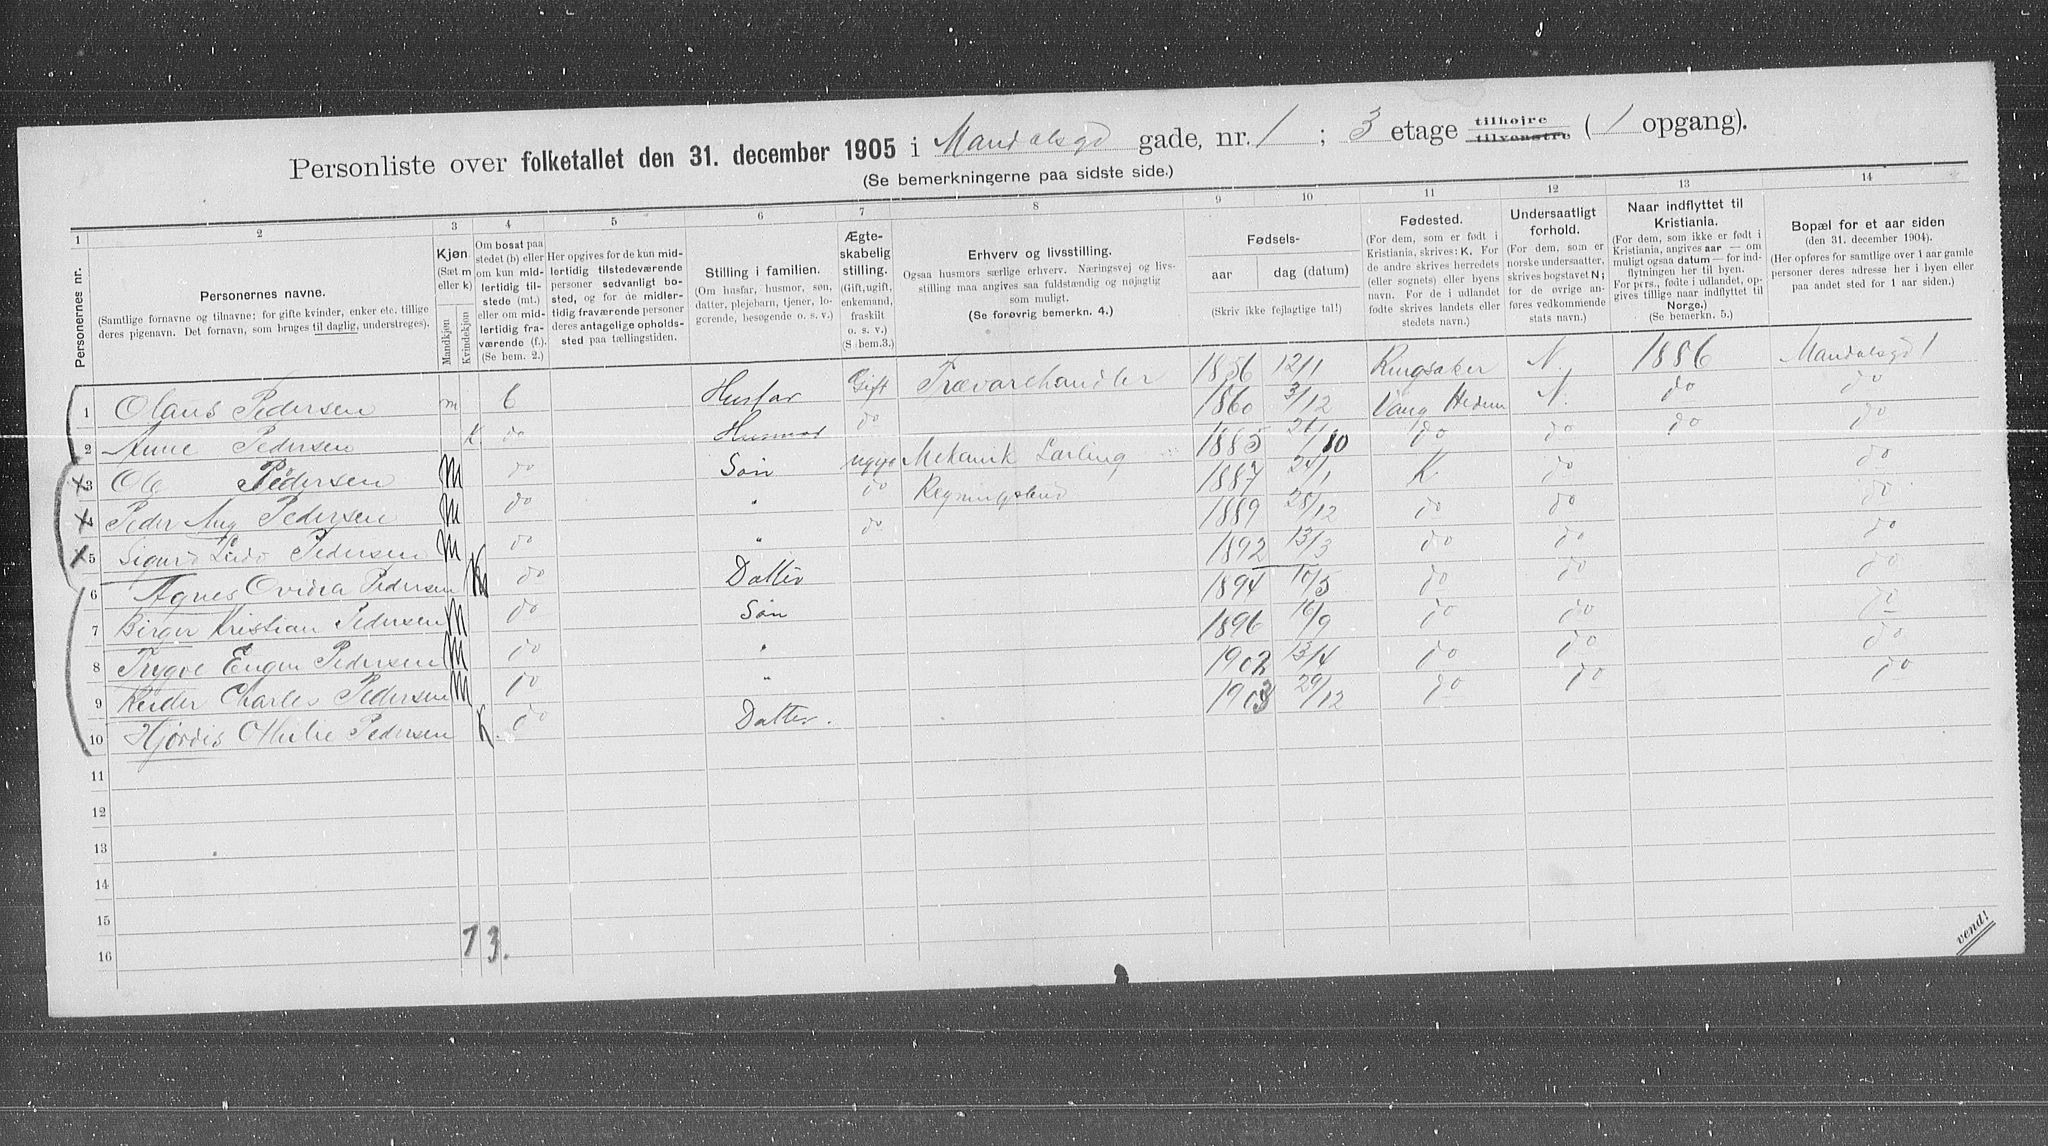 Personliste over folketallet den 31. december 1905 i Mandalsgd gade, nr. 1 ; 3 etage tilhøjre tilvenstre ( 1 opgang).
(Se bemerkningerne paa sidste side.)
1 2 3 4 5 6 7 8 9 10 11 12 13 14
Personernes nr.
Personernes navne.
(Samtlige fornavne og tilnavne; for gifte kvinder, enker etc. tillige
deres pigenavn. Det fornavn, som bruges til daglig, understreges).
Kjøn
(Sæt m
eller k)
Mandkjøn
Kvindekjøn
Om bosat paa
stedet (b) eller
om kun mid-
lertidig til-
stede (mt.)
eller om mid-
lertidig fra-
værende (f.).
(Se bem. 2.)
Her opgives for de kun mid-
lertidig tilstedeværende
personer sedvanligt bo-
sted, og for de midler-
tidig fraværende personer
deres antagelige opholds-
sted paa tællingstiden.
Stilling i familien.
(Om husfar, husmor, søn,
datter, plejebarn, tjener, lo-
gerende, besøgende o. s. v.)
Ægte-
skabelig
stilling.
(Gift, ugift,
enkemand,
fraskilt
o. s. v.)
(S bem.3.)
Erhverv og livsstilling.
Ogsaa husmors særlige erhverv. Næringsvej og livs-
stilling maa angives saa fuldstændig og nøjagtig
som muligt.
(Se forøvrig bemerkn. 4.)
Fødsels-
aar dag (datum)
(Skriv ikke fejlagtige tal!)
Fødested.
(For dem, som er født i
Kristiania, skrives: K. For
de andre skrives herredets
(eller sognets) eller byens
navn. For de i udlandet
fødte skrives landets eller
stedets navn.)
Undersaatligt
forhold.
(For dem, som er
norske undersaatter,
skrives bogstavet N;
for de øvrige an-
føres vedkommende
stats navn.)
Naar indflyttet til
Kristiania.
(For dem, som ikke er født i
Kristiania, angives aar — om
muligt ogsaa datum — for ind-
flytningen her til byen.
For prs., fødte i udlandet, op-
gives tillige naar indflyttet til
Norge.)
(Se bemerkn. 5.)
Bopæl for et aar siden
(den 31. december 1904).
(Her opføres for samtlige over 1 aar gamle
personer deres adresse her i byen eller
paa andet sted for 1 aar siden.)
1 Olaus Pedersen m b Husfar Gift Trævarehandler 1856 12/11 Ringsaker N. 1886 Mandalsgd 1
2 Anne Pedersen K do Husmor do 1860 3/12 Vang Hedm N. do do
3 Ole Pedersen M do Søn ugift Mekanik Lærling 1885 21/10 do do do do
4 Peder Aug Pedersen M do " do 1887 24/1 K. do do
5 Sigurd Ludv Pedersen M do " do 1889 28/12 do do do
6 Agnes Ovidia Pedersen K do Datter 1892 13/3 do do do
7 Birger Kristian Pedersen M do Søn 1894 10/5 do do do
8 Trygve Eugen Pedersen M do " 1896 16/9 do do do
9 Reider Charles Pedersen M do " 1902 13/4 do do do
10 Hjørdis Othilie Pedersen K. do Datter. 1903 29/12 do do do
11
12
13
14
15
16
7 3.
vend!